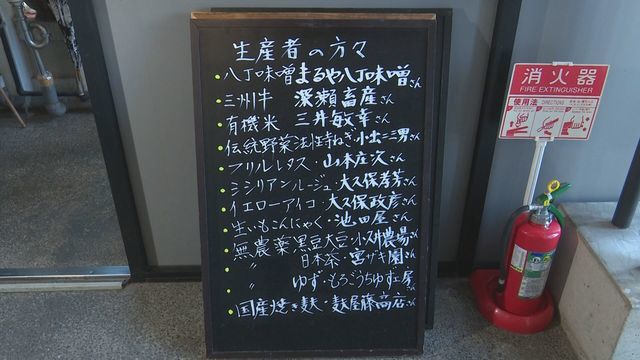 生産者の方々
八丁味噌 まるや八丁味噌さん
三州牛 深瀬畜産さん
有機米 三井敏幸さん
伝統野菜法性寺ねぎ・小出二三男さん
フリルレタス・山本庄次さん
シシリアンルージュ・大久保孝芳さん
イエローアイコ・大久保政彦さん
生いもこんにゃく・池田屋さん
無農薬黒豆大豆・小久井農場さん
〃 日本茶・宮ザキ園さん
〃 ゆず・もろこうちゆず工房さん
国産焼き麩・麩屋藤商店さん
消火器
FIRE EXTINGUISHER
使用法
DIRECTIONS